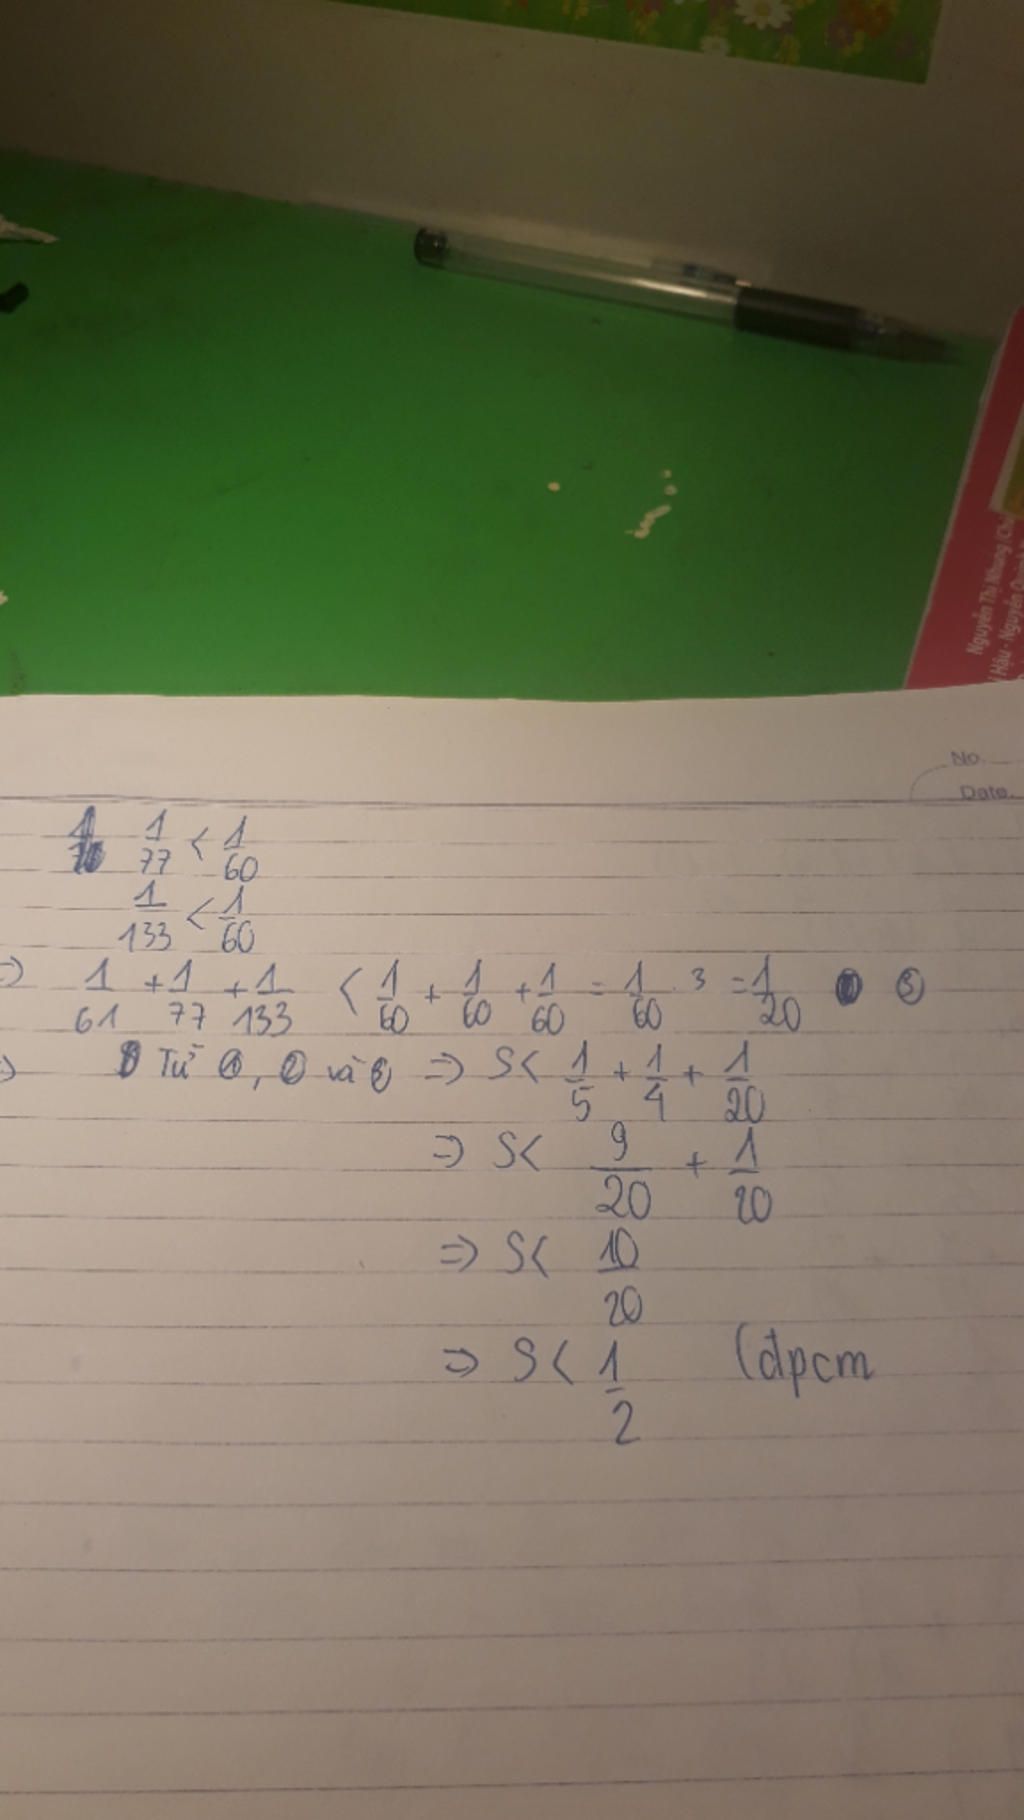 Nguyễn Thị Nhung (Ch
Hậu - Nguyễn
No.
Date.
1/77 < 1/60
1/133 < 1/60
=> 1/61 + 1/77 + 1/133 < 1/60 + 1/60 + 1/60 = 1/60 . 3 = 1/20 ③
=> Từ ①, ② và ③ => S < 1/5 + 1/4 + 1/20
=> S < 9/20 + 1/20
=> S < 10/20
=> S < 1/2 (đpcm